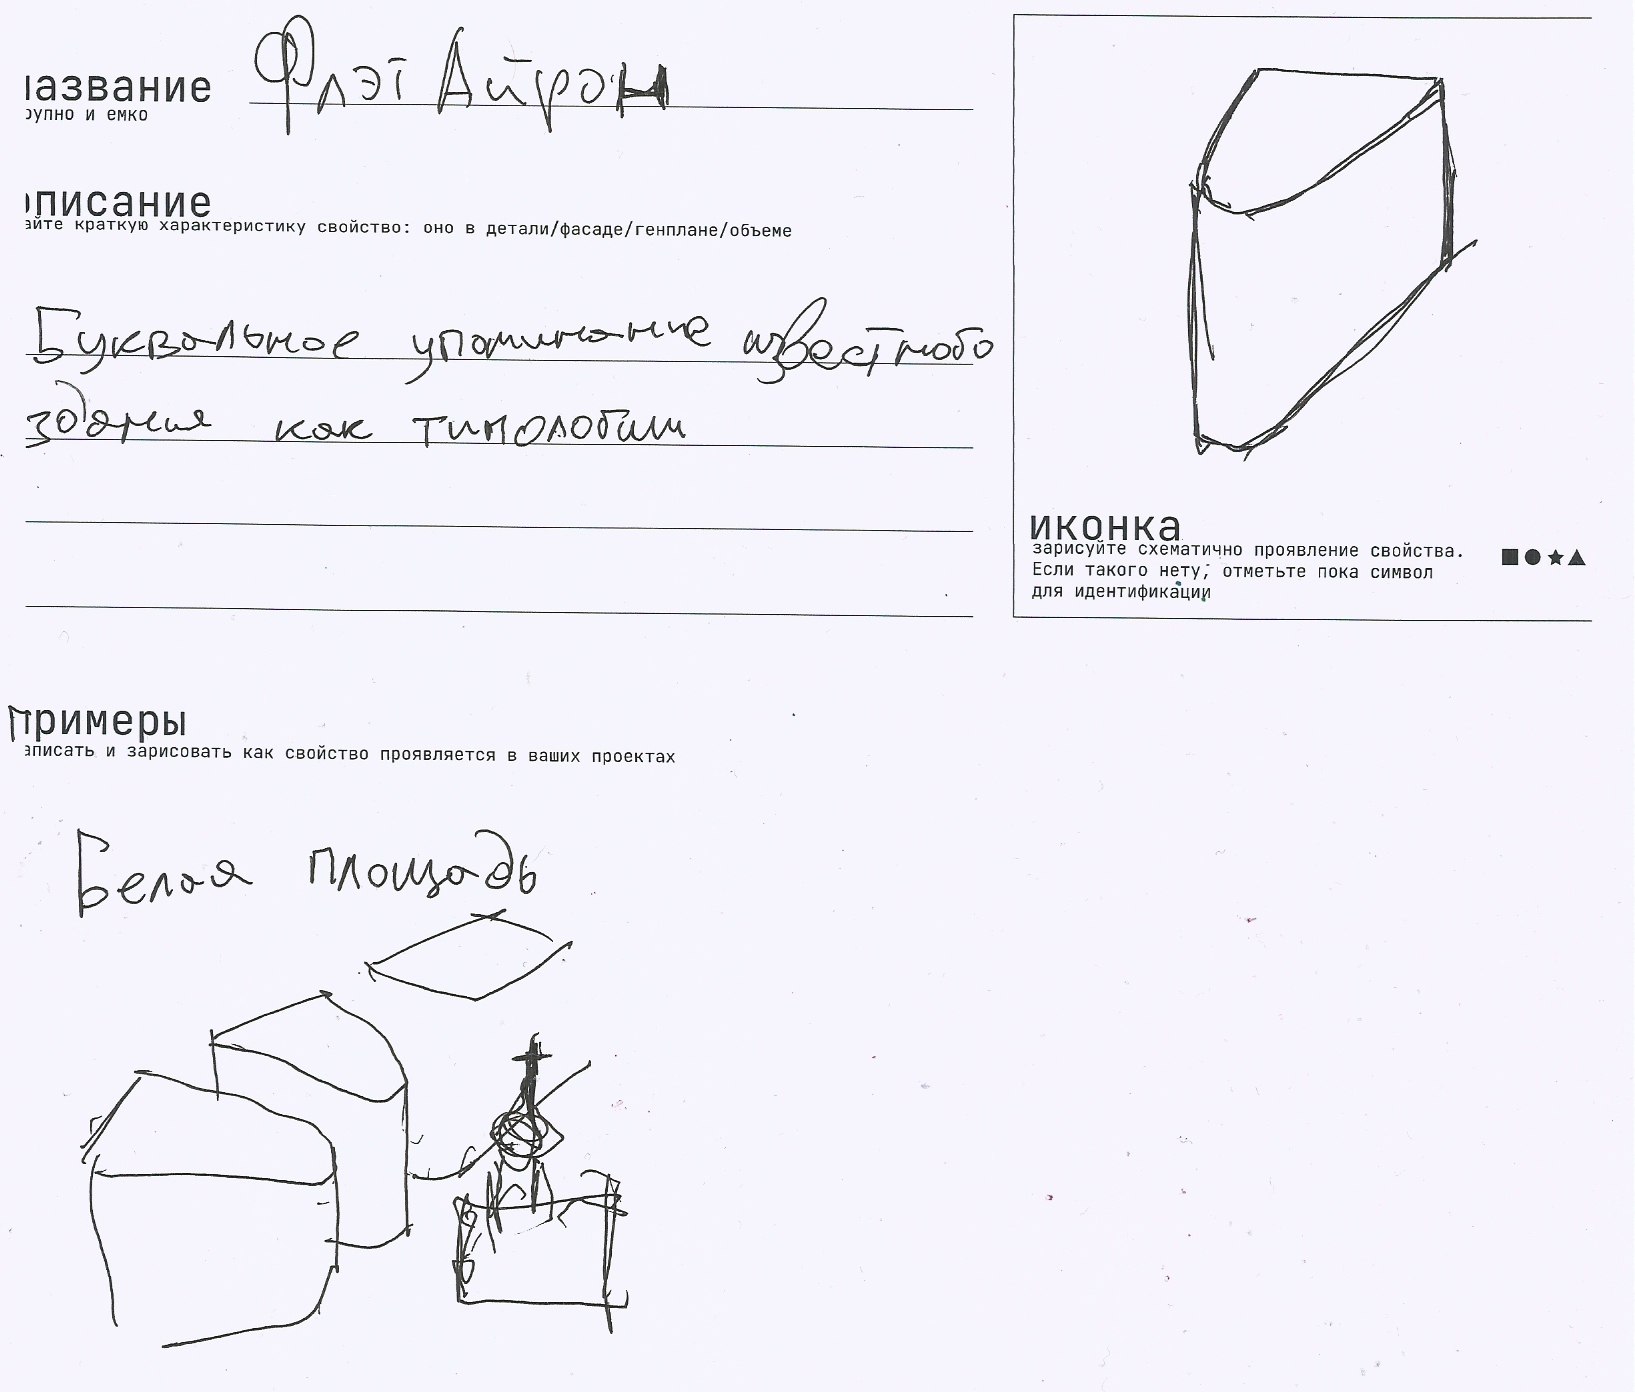 название
Флэт Айрон
рупно и емко
описание
айте краткую характеристику свойство: оно в детали/фасаде/генплане/объеме
Буквальное упоминание известного
здания как типологии
иконка
зарисуйте схематично проявление свойства.
Если такого нету, отметьте пока символ
для идентификации
примеры
аписать и зарисовать как свойство проявляется в ваших проектах
Белая площадь